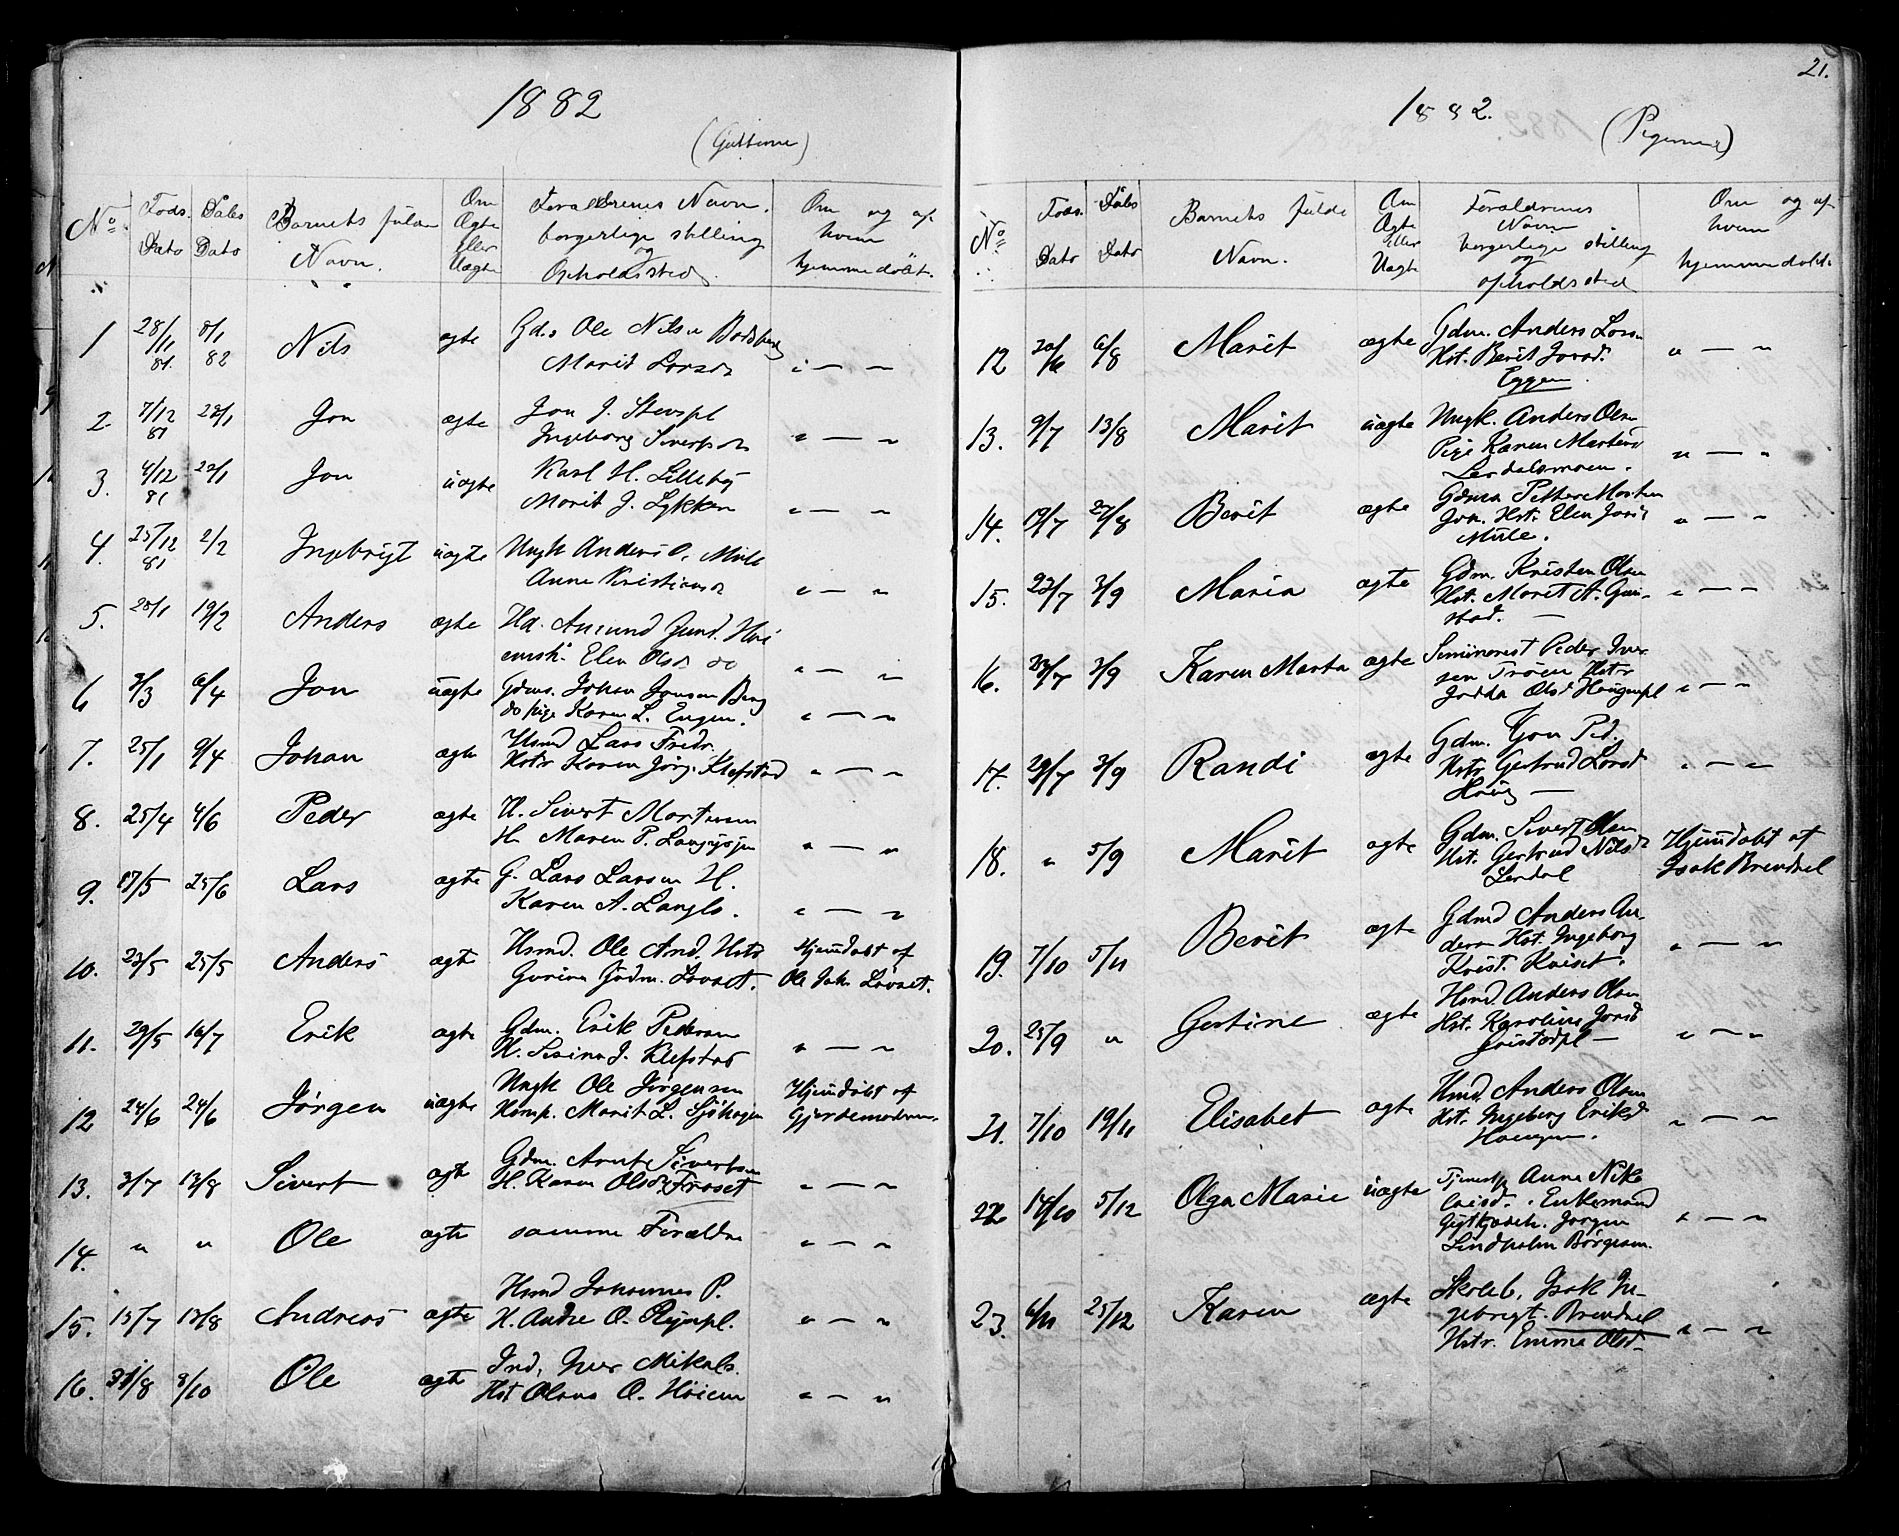 1882
(Gutterne)
No Føds. Dato Døbes Dato Barnets fulde Navn. Om Ægte Eller Uægte Forældrenes Navn, borgerlige stilling og Opholdssted. Om og af hvem hjemmedøbt.
1 28/11 81. 8/1 82 Nils ægte Gd. Ole Nilsen
Marit Larsdr " — "
2 7/12 81 22/1 Jon ægte Jon J.
Ingeborg Sivertsdr " — "
3. 4/12 81 22/1 Jon uægte Karl H. Lilleby
Marit J. Lykken " — "
4. 25/12 81 2/2 Ingebrigt uægte Ungk Anders O. Mule
Anne Kristiansdr " — "
5. 20/1 19/2 Anders ægte Hd. Amund Gund. Høi
emsh. Elen Olsdr do " — "
6 3/3 6/4 Jon uægte Gdms. Johan Jonsen Berg
do pige Karen L. Engen. " — "
7. 25/1 9/4 Johan ægte Hsmd Lars Fredr.
Hstr Karen Jörg. Klefstad " — "
8. 25/4 4/6 Peder ægte H. Sivert Mortensen
H. Maren P. " — "
9. 17/5 25/6 Lars ægte G. Lars Larsen H.
Karen A. Langlo. " — "
10. 23/5 25/5 Anders ægte Hsmd. Ole And. Hstr
Gurina Gudm. Løvset. Hjemdøbt af
Ole Joh. Løvset.
11. 29/5 16/7 Erik ægte Gdm. Erik Pedersen
H. J. Klefstad " — "
12 24/6 24/6 Jørgen uægte Ungk Ole Jørgensen
Marit L. Sjöhagen Hjemdøbt af
Gjordemoderen.
13. 3/7 13/8 Sivert ægte Gdm. Arnt Sivertsen
H. Karen Olsdr. Frøset " — "
14. " " Ole ægte samme Forældre " — "
15. 15/7 13/8 Andreas ægte Hsmd Johannes P.
H. Andre O. " — "
16. 31/8 8/10 Ole ægte Ind. Iver Mikals.
Hst Olava O. Høiem " — "
21.
1882.
(Pigerne)
No Føds. Dato Døbes Dato Barnets fulde Navn. Om Ægte Eller Uægte Forældrenes Navn borgerlige stilling og opholdssted Om og af hvem hjemmedøbt.
12 20/6 6/8 Marit ægte Gdm. Anders Larsen
Hst. Berit Jonsd.
Eggen. " — "
13. 9/7 13/8 Marit uægte Ungk. Anders Olsen
Pige Karen Martens
Lerdalsmoen. " — "
14. 19/7 27/8 Berit ægte Gdmd Petter Morten
Joh. Hst. Elen
Mule. " — "
15. 22/7 3/9 Maria ægte Gdm. Kristen Olsen
Hst. Marit A. Gun-
stad. — " — "
16. 23/7 3/9 Karen Marta ægte Seminarist Peder Iver
sen Trøen Hstr
Olsd Haugenpl " — "
17. 29/7 3/9 Randi ægte Gdm. Jon Ped.
Hstr. Gertrud Larsd
Haug — " — "
18. " 5/9 Marit ægte Gdm. Sivert Olsen
Hst. Gertrud Nilsdr
Lerdal Hjemdøbt af
Isak Brendsel
19. 7/10 5/11 Berit ægte Gdmd Anders An-
ders Hst. Ingeborg
Krist. " — "
20. 25/9 " Gertine ægte Hsmd. Anders Olsen
Hst. Karoline Jonsd
— " — "
21. 7/10 19/11 Elisabet ægte Hsmd. Anders Olsen
Hst. Ingeborg Eriksd
Haugen. " — "
22 14/10 5/12 Olga Marie uægte Tjenestp Anne Niko
laisd. Enkemand
Jørgen
Lindholm Börgesen. " — "
23. 6/11 25/12 Karen ægte Skoleb. Isak In-
gebrigt. Brendsel
Hstr. Emma Olsd— " — "